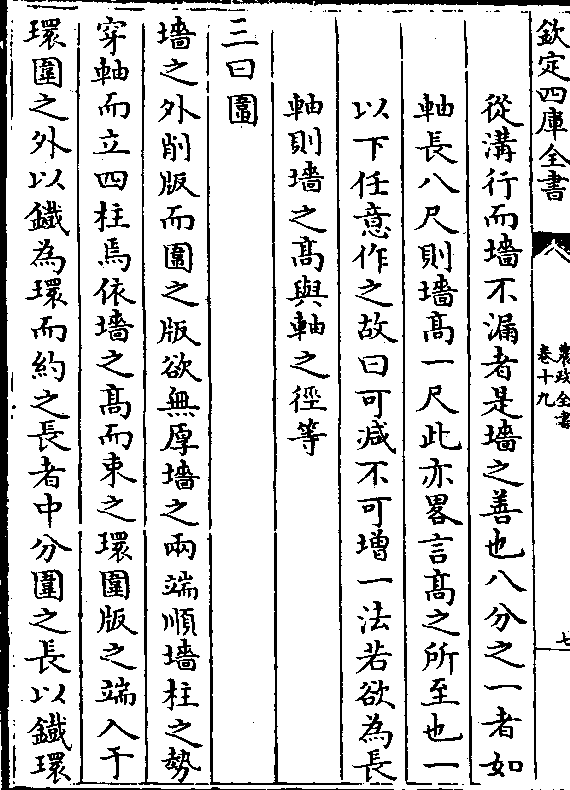 欽定四庫全書
農政全書
卷十九
七
從溝行而墻不漏者是墻之善也八分之一者如
軸長八尺則墻髙一尺此亦畧言髙之所至也一
以下任意作之故曰可減不可增一法若欲為長
軸則墻之髙與軸之徑等
三曰圍
墻之外削版而圍之版欲無厚墻之兩端順墻柱之勢
穿軸而立四柱焉依墻之髙而束之環圍版之端入于
環圍之外以鐵為環而約之長者中分圍之長以鐵環